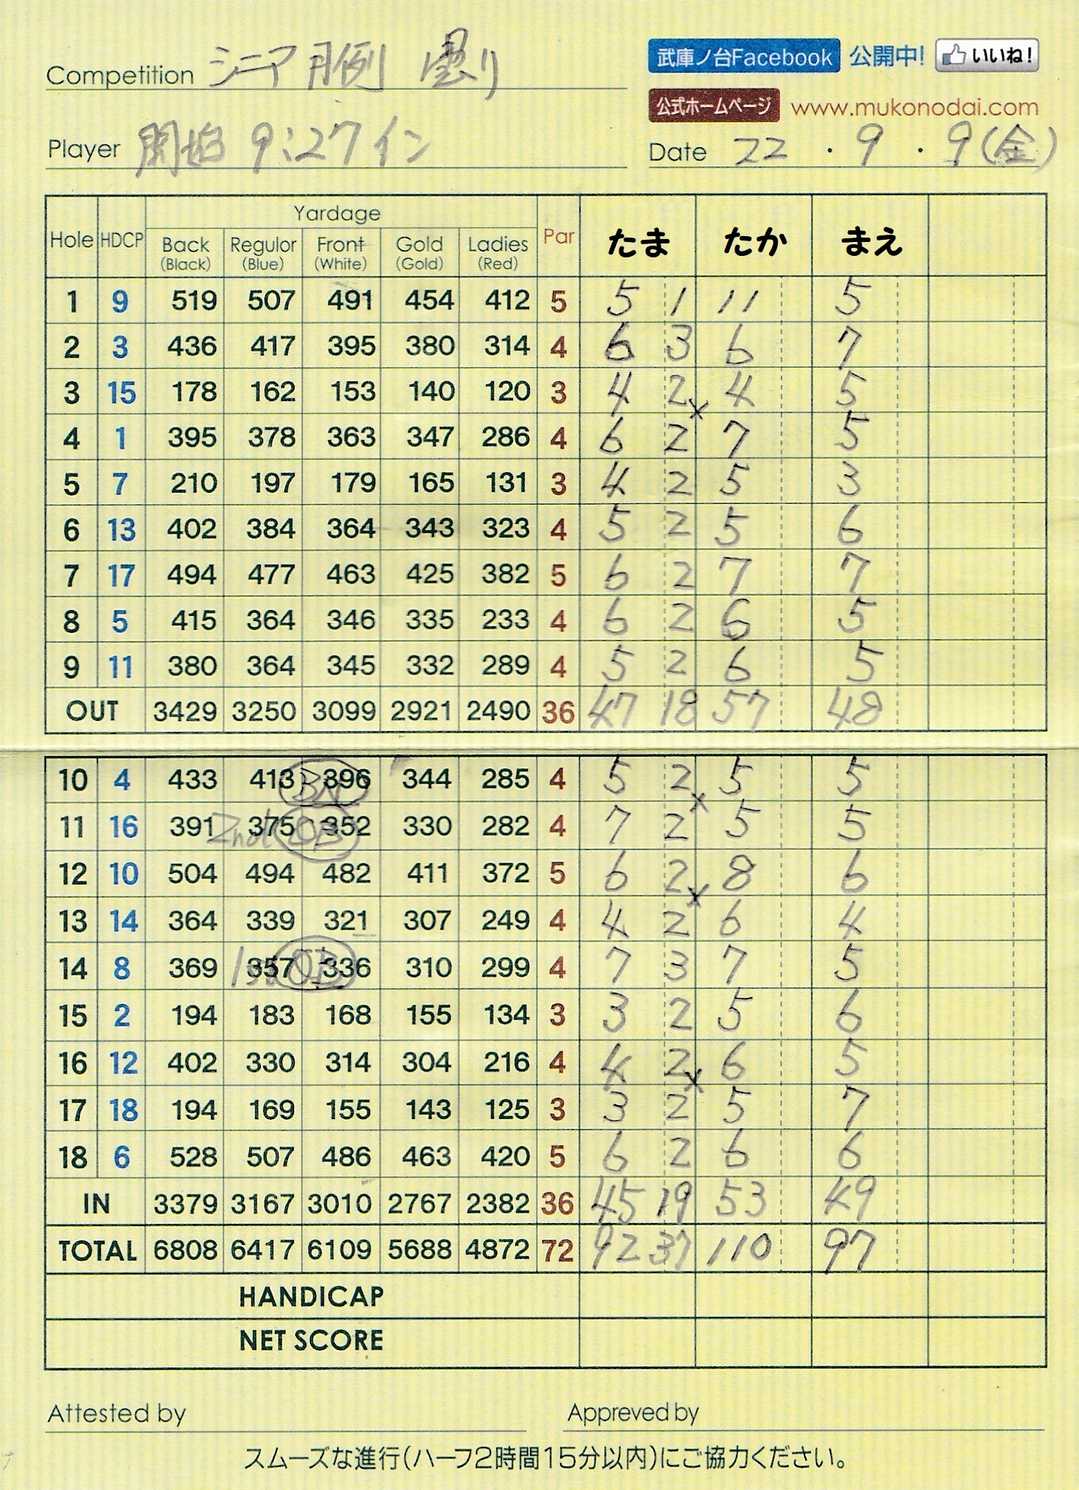 Competition シニア月例 曇り
武庫ノ台Facebook 公開中! いいね!
公式ホームページ www.mukonodai.com
Player 開始 9:27 イン
Date 22 . 9 . 9(金)
Hole HDCP Yardage Par たま たか まえ
Back (Black) Regulor (Blue) Front (White) Gold (Gold) Ladies (Red)
1 9 519 507 491 454 412 5 5 1 11 5
2 3 436 417 395 380 314 4 6 3 6 7
3 15 178 162 153 140 120 3 4 2 x 4 5
4 1 395 378 363 347 286 4 6 2 7 5
5 7 210 197 179 165 131 3 4 2 5 3
6 13 402 384 364 343 323 4 5 2 5 6
7 17 494 477 463 425 382 5 6 2 7 7
8 5 415 364 346 335 233 4 6 2 6 5
9 11 380 364 345 332 289 4 5 2 6 5
OUT 3429 3250 3099 2921 2490 36 47 18 57 48
10 4 433 413 BN 396 344 285 4 5 2 x 5 5
11 16 391 2nd 375 OB 352 330 282 4 7 2 5 5
12 10 504 494 482 411 372 5 6 2 x 8 6
13 14 364 339 321 307 249 4 4 2 6 4
14 8 369 1st 357 OB 336 310 299 4 7 3 7 5
15 2 194 183 168 155 134 3 3 2 5 6
16 12 402 330 314 304 216 4 4 2 x 6 5
17 18 194 169 155 143 125 3 3 2 5 7
18 6 528 507 486 463 420 5 6 2 6 6
IN 3379 3167 3010 2767 2382 36 45 19 53 49
TOTAL 6808 6417 6109 5688 4872 72 92 37 110 97
HANDICAP
NET SCORE
Attested by
Appreved by
スムーズな進行(ハーフ2時間15分以内)にご協力ください。